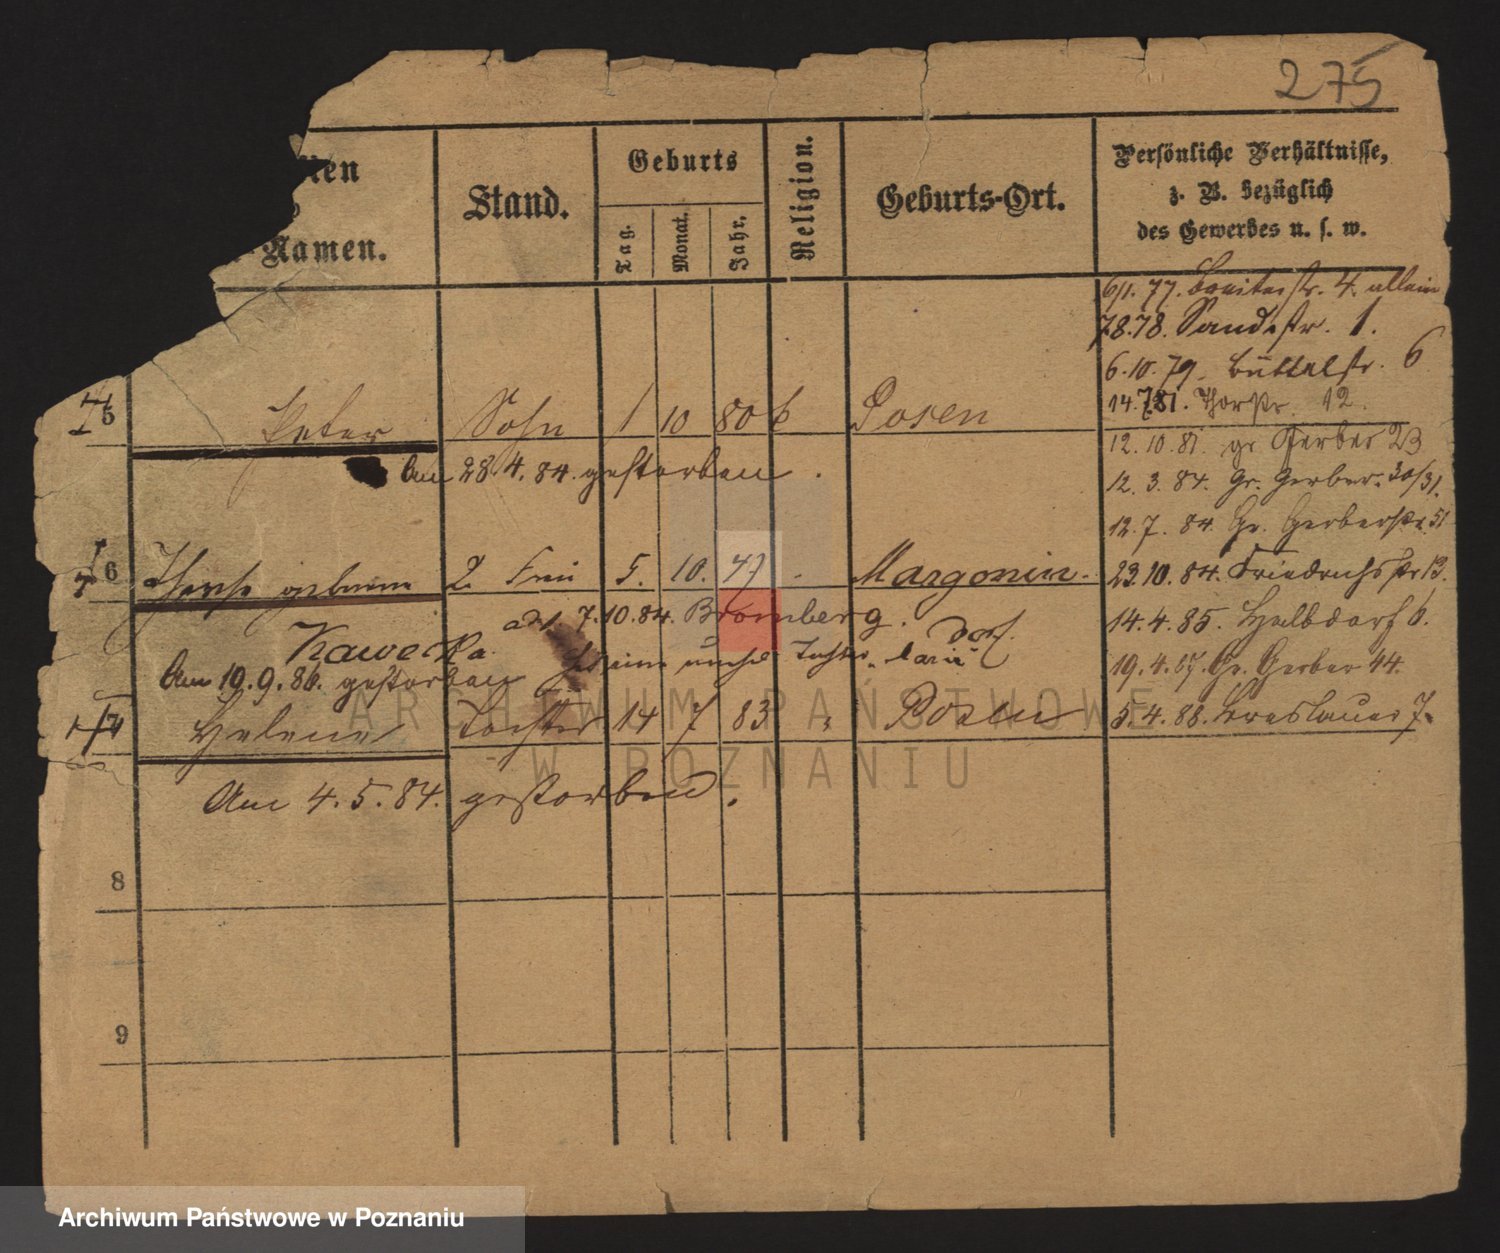 275
Namen.
Stand.
Geburts
Tag.
Monat.
Jahr.
Religion.
Geburts-Ort.
Persönliche Verhältnisse,
z. B. bezüglich
des Gewerbes u. s. w.
6/1. 77. str. 4. allein
7.8.78. Sandstr. 1.
6.10.79. Büttelstr. 6
14.7.81. Thorstr. 12.
5 Peter Sohn 1 10 80 k Posen
12.10.81. gr Gerber 23
Am 28.4.84. gestorben.
12.3.84. Gr. Gerber. 30/31.
12.7.84. Gr. Gerberstr. 51
6 geborene 2. Frau 5. 10. 47 Margonin.
23.10.84. Friedrichsstr 13.
Kawecka
7.10.84. Bromberg.
14.4.85. Halbdorf 6.
dort
Am 19.9.86. gestorben
19.4.87. Gr. Gerber 44.
7 Helene Tochter 14 7 83 " Posen
5.4.88. Breslauer 7.
Am 4.5.84. gestorben.
8
9
ARCHIWUM PAŃSTWOWE
W POZNANIU
Archiwum Państwowe w Poznaniu